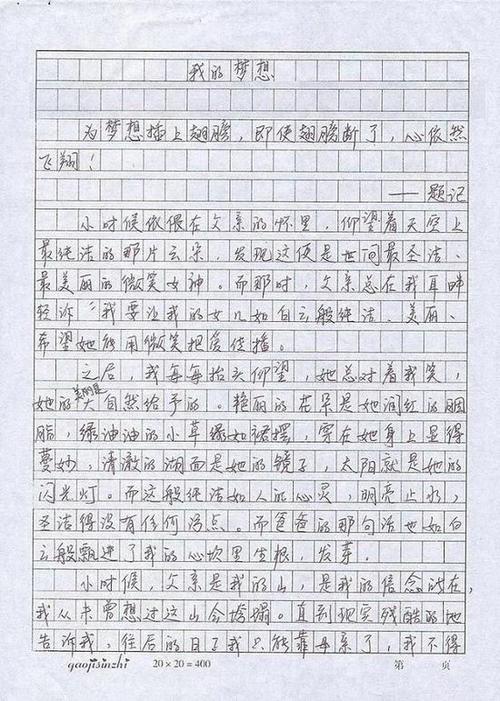 我的梦想
为梦想插上翅膀，即使翅膀断了，心依然
飞翔！
——题记
小时候依偎在父亲的怀里，仰望着天空上
最纯洁的那片云朵，发现这便是世间最圣洁、
最美丽的微笑女神。而那时，父亲总在我耳畔
轻诉“我要让我的女儿如白云般纯洁、美丽、
希望她能用微笑把爱传播。
之后，我每每抬头仰望，她总对着我笑，
美丽是
她的大自然给予的。艳丽的花朵是她润红的胭
脂，绿油油的小草绿如裙摆，穿在她身上显得
曼妙，清澈的湖面是她的镜子，太阳就是她的
闪光灯。而这般纯洁如人的心灵，明亮止水，
圣洁得没有任何污点。而爸爸的那句话也如白
云般飘进了我的心坎里生根，发芽。
小时候，父亲是我的山，是我的信念所在，
我从未曾想过这山会垮塌。直到现实残酷的地
告诉我，往后的日子我只能靠母亲了，我不得
gaojisinzhi 20×20=400 第 页